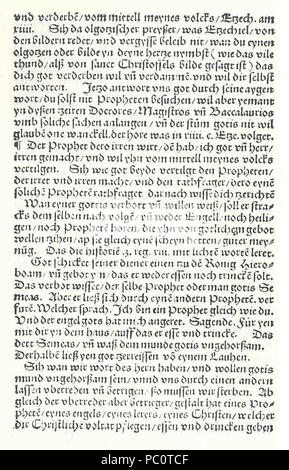 vnd verderbē/vom mittell meynes volcks/Ezech. am
xiiii. Sih da olgotzischer preyster/was Ezechiel/von
den bildern redet/vnd vergysse beleib nit/wan du eynen
olgotzen oder bildt yn deyne hertze nymbst (wie das vile
thund/alß von sanct Christoffels bilde gesagt ist) das
dich got verderben wil vñ verdammē. vnd wil dir selbst
antworten. Jetzo antwort vns got durch seine aygen
wort/du solst nit Propheten besuchen/wil aber yemant
zu dyßen zeiten Doctores/Magistros vñ Baccalaurios
vmb soliche sachen anlangen/vñ der stüm gotis nit wil
glaubē one wanckell. der hore was in xiiii. c. Etze. volget.
¶ Der Prophet der o irren wirt/dē hab/ich got vñ herr/
irren gemacht/vnd wil yhn vom mittell meynes volcks
vertilgen. Sih wie got beyde vertilgt den Propheten/
der irret vnd irren macht/vnd den rathfrager/der o eynē
solichē Prophetē rathfraget. darnach wisse dich zerichtē
Wan eyner gottis verbott vñ willen weiß/soll er stra-
cks dem selben nach volgē/vñ weder Engell/noch heili-
gen/noch Prophetē horen/die yhn von gotlichem gebot
wellen zihen/ap sie gleich eynē scheyn hetten/guter mey-
nūg. Das die historiē .3. reg. xiii. mit lichtē wortē leret.
Got schicket seiner diener einen zu dē Konig Hiero-
boam/vñ gebot ym/das er weder essen noch trincken solt.
Das verbot wisset/der selbe Prophet oder man gotis Se-
meas. Aber er ließ sich durch eynē andern Prophetē. ver-
furē. Welcher sprach. Ich bin ein Prophet gleich wie du.
Vnd der engel gots hat mich angeret. Sagende. Für yen
mit dir yn dein haus/auff das er esse vnd trincke. Das
dett Semeas/vñ waß dem munde gotis vngehorßam.
Derhalbē ließ yen got zerreissen vō eynem Lauhen.
Sih wan wir wort des hern haben/vnd wollen gotis
mund vngehorßam sein/vnnd vns durch einen andern
lassen vberreden vñ betrigen/so mussen wir sterben. Ab
gleich der vberreder aber betrieger/gestalt hat eines Pro-
phetē/eynes engels/eynes lerers/eynes Christen/welcher
die Christliche volk ar pflegen/essen vnd drincken geben
PC0TCF